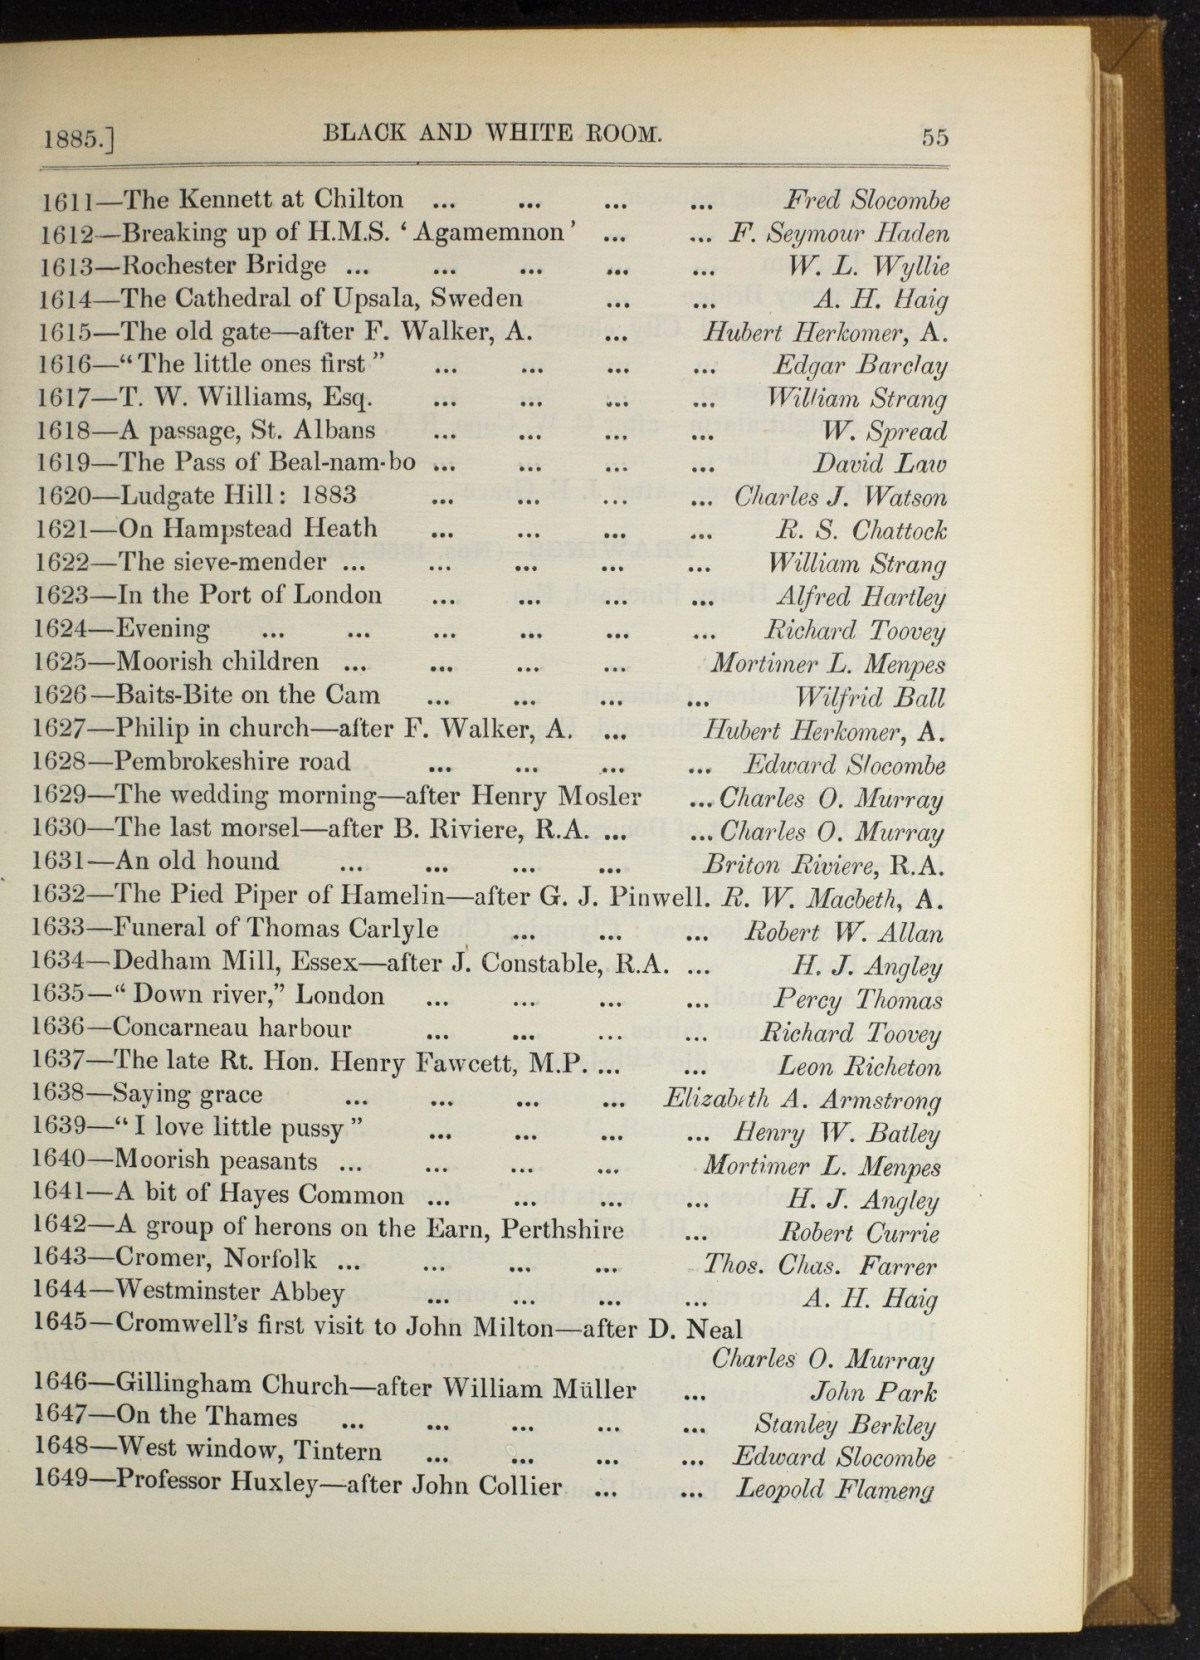 1885.] BLACK AND WHITE ROOM. 55
1611—The Kennett at Chilton ... ... ... ... Fred Slocombe
1612—Breaking up of H.M.S. ‘Agamemnon’ ... ... F. Seymour Haden
1613—Rochester Bridge ... ... ... ... ... W. L. Wyllie
1614—The Cathedral of Upsala, Sweden ... ... A. H. Haig
1615—The old gate—after F. Walker, A. ... Hubert Herkomer, A.
1616—“The little ones first” ... ... ... ... Edgar Barclay
1617—T. W. Williams, Esq. ... ... ... ... William Strang
1618—A passage, St. Albans ... ... ... ... W. Spread
1619—The Pass of Beal-nam-bo ... ... ... ... David Law
1620—Ludgate Hill: 1883 ... ... ... ... Charles J. Watson
1621—On Hampstead Heath ... ... ... ... R. S. Chattock
1622—The sieve-mender ... ... ... ... ... William Strang
1623—In the Port of London ... ... ... ... Alfred Hartley
1624—Evening ... ... ... ... ... ... Richard Toovey
1625—Moorish children ... ... ... ... Mortimer L. Menpes
1626—Baits-Bite on the Cam ... ... ... ... Wilfrid Ball
1627—Philip in church—after F. Walker, A. ... Hubert Herkomer, A.
1628—Pembrokeshire road ... ... ... ... Edward Slocombe
1629—The wedding morning—after Henry Mosler ... Charles O. Murray
1630—The last morsel—after B. Riviere, R.A. ... ... Charles O. Murray
1631—An old hound ... ... ... ... Briton Riviere, R.A.
1632—The Pied Piper of Hamelin—after G. J. Pinwell. R. W. Macbeth, A.
1633—Funeral of Thomas Carlyle ... ... ... Robert W. Allan
1634—Dedham Mill, Essex—after J. Constable, R.A. ... H. J. Angley
1635—“Down river,” London ... ... ... ... Percy Thomas
1636—Concarneau harbour ... ... ... ... Richard Toovey
1637—The late Rt. Hon. Henry Fawcett, M.P. ... ... Leon Richeton
1638—Saying grace ... ... ... ... Elizabeth A. Armstrong
1639—“I love little pussy” ... ... ... ... Henry W. Batley
1640—Moorish peasants ... ... ... ... Mortimer L. Menpes
1641—A bit of Hayes Common ... ... ... ... H. J. Angley
1642—A group of herons on the Earn, Perthshire ... Robert Currie
1643—Cromer, Norfolk ... ... ... ... Thos. Chas. Farrer
1644—Westminster Abbey ... ... ... ... A. H. Haig
1645—Cromwell’s first visit to John Milton—after D. Neal
Charles O. Murray
1646—Gillingham Church—after William Müller ... John Park
1647—On the Thames ... ... ... ... ... Stanley Berkley
1648—West window, Tintern ... ... ... ... Edward Slocombe
1649—Professor Huxley—after John Collier ... ... Leopold Flameng